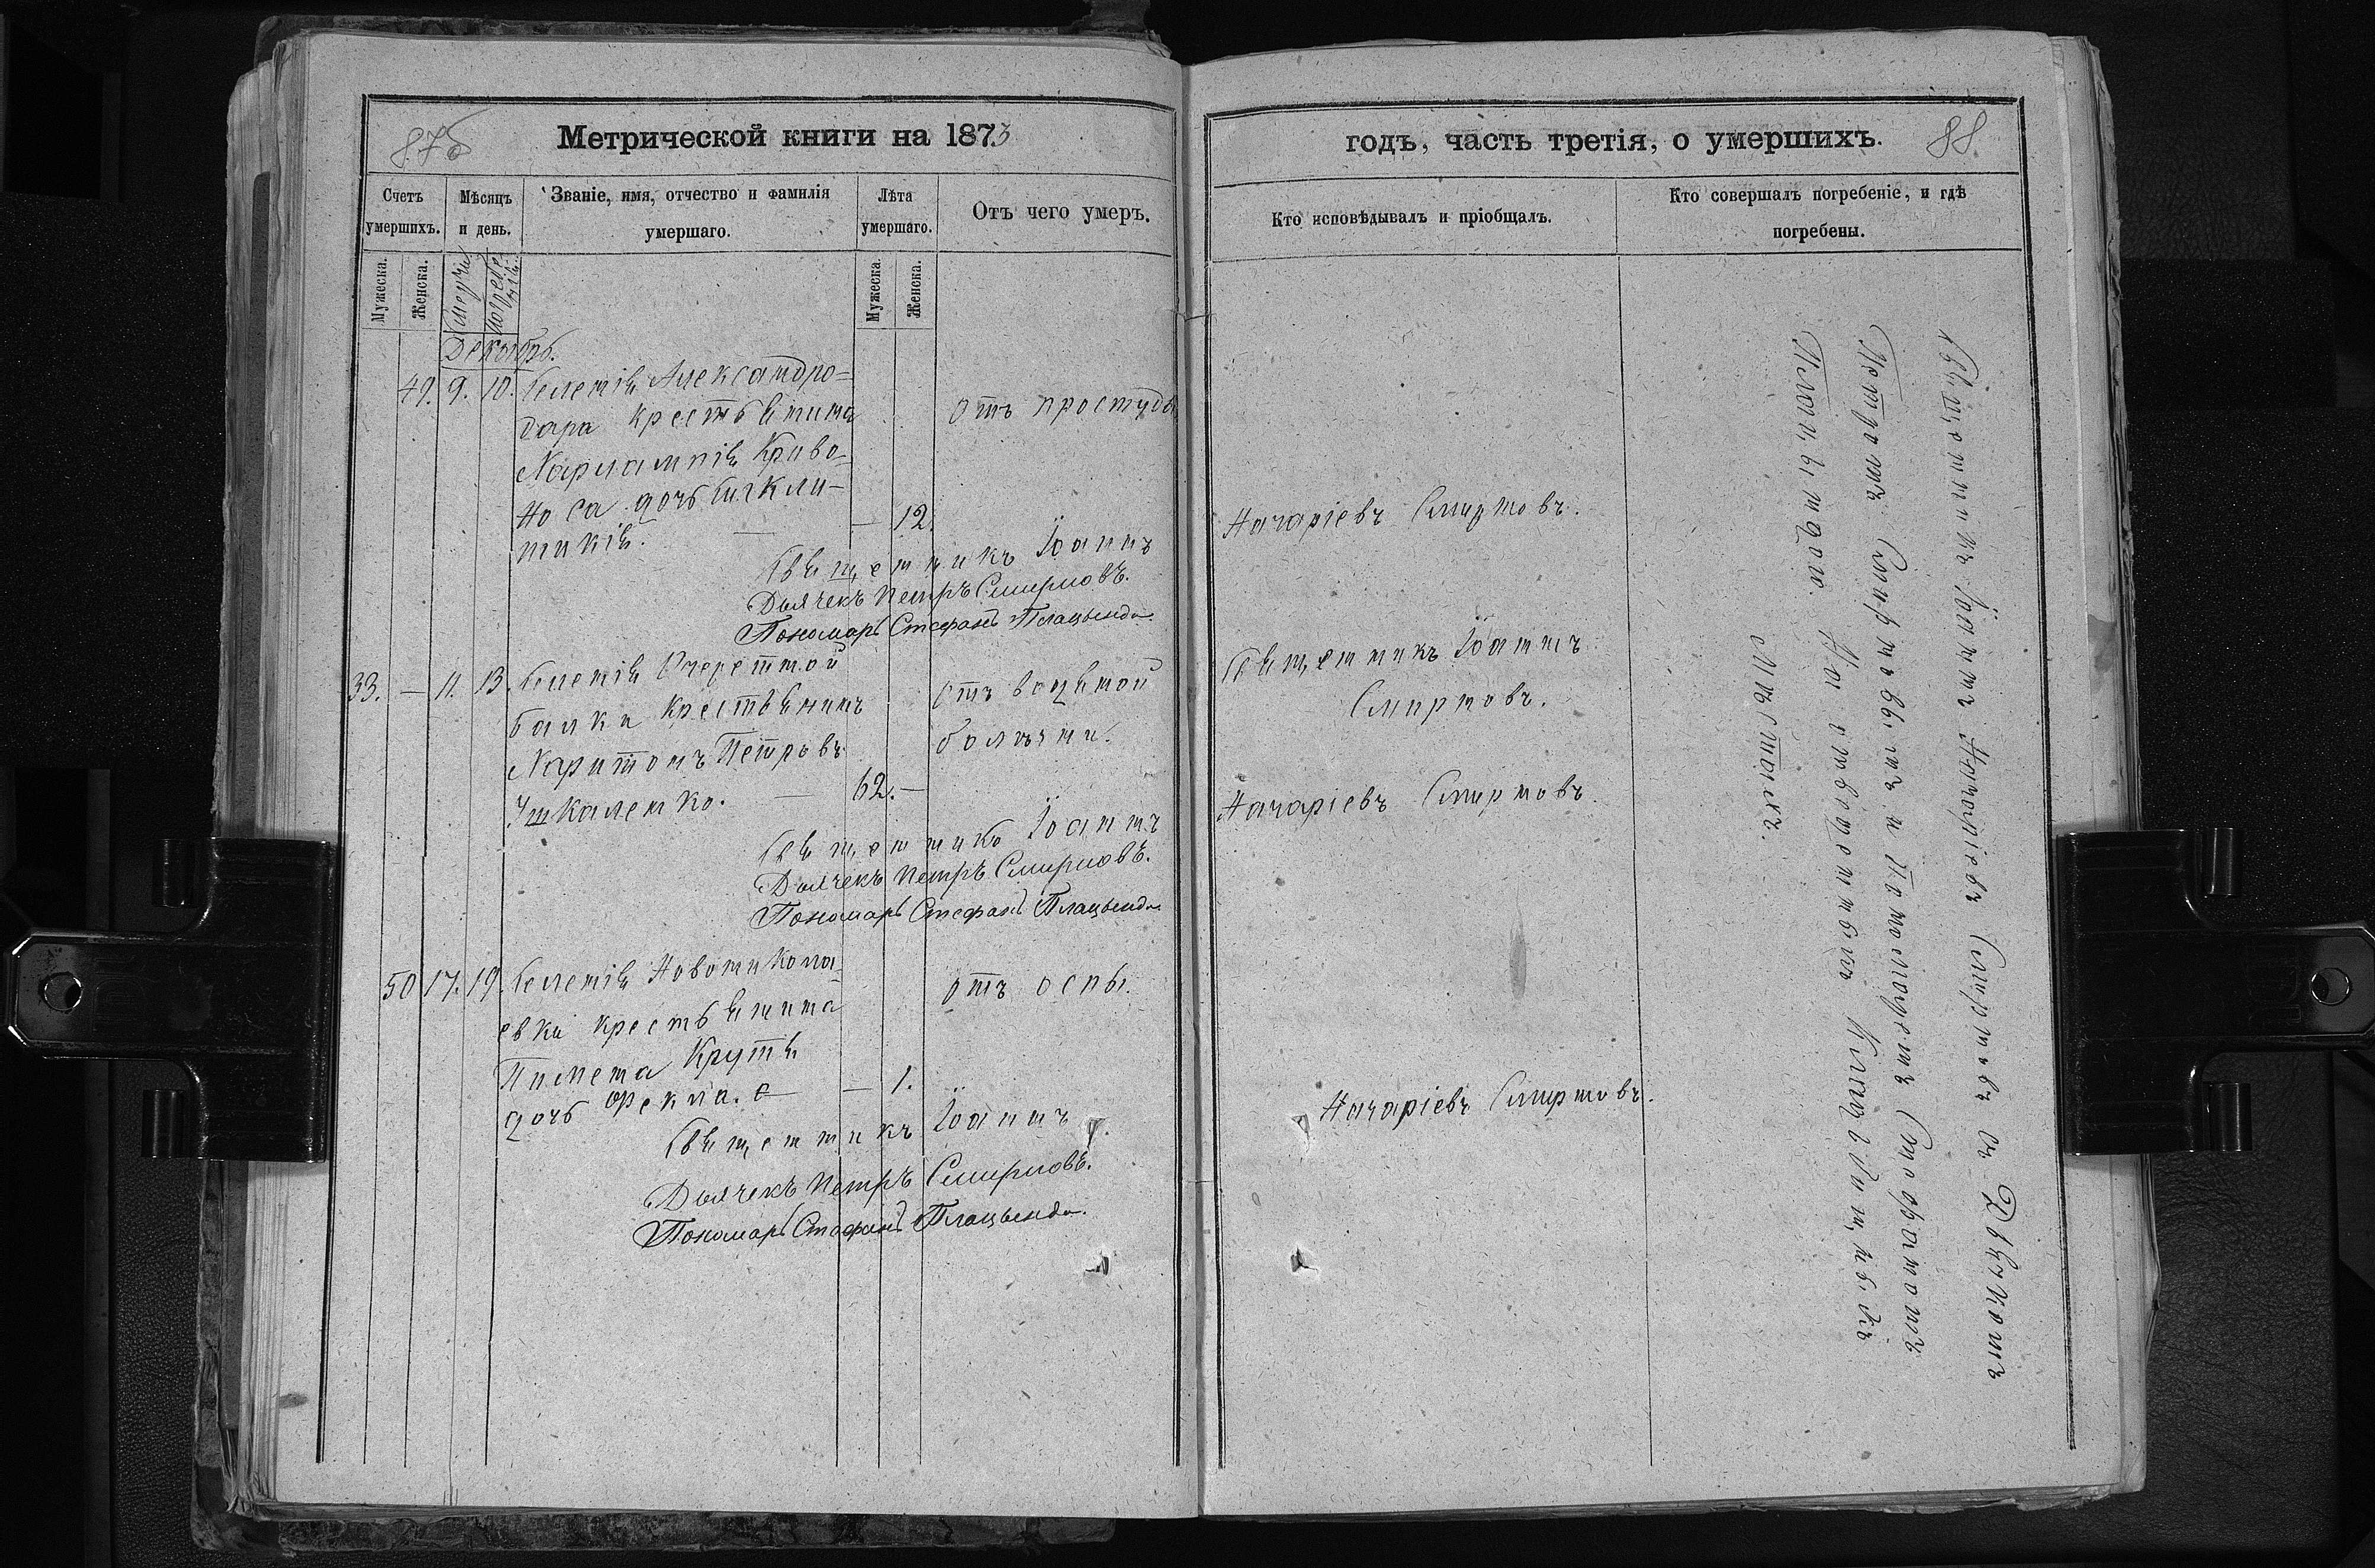 87б
Метрической книги на 1873
Счетъ умершихъ.
Мѣсяцъ и день.
Званіе, имя, отчество и фамилія умершаго.
Лѣта умершаго.
Отъ чего умеръ.
Мужеска.
Женска.
Смерти
Погребенія
Мужеска.
Женска.
Декабрь.
49. 9. 10. Селенія Александро-
дара крестьянина
отъ простуды
Харлампія Криво-
носа дочь Синкли-
тикія. — — 12.
Священникъ Іоаннъ
Дьячекъ Петръ Смирновъ.
Пономарь Стефанъ Плацында.
33. — 11. 13. Селенія Очеретной
балки крестьянинъ
отъ водяной
Харитонъ Петровъ
болѣзни.
Ушкаленко. — 62. —
Священникъ Іоаннъ
Дьячекъ Петръ Смирновъ.
Пономарь Стефанъ Плацында.
50 17. 19. Селенія Новоникола-
евки крестьянина
отъ оспы.
Пимена Крутя
дочь Фекла. — — 1.
Священникъ Іоаннъ
Дьячекъ Петръ Смирновъ.
Пономарь Стефанъ Плацында.
годъ, часть третія, о умершихъ.
88
Кто исповѣдывалъ и пріобщалъ.
Кто совершалъ погребеніе, и гдѣ погребены.
Назаріевъ Смирновъ.
Священникъ Іоаннъ
Смирновъ.
Назаріевъ Смирновъ.
Назаріевъ Смирновъ.
Священникъ Іоаннъ Назаріевъ Смирновъ съ Дьячкомъ
Петромъ Смирновымъ и Пономаремъ Стефаномъ
Плацындою. На приходскомъ кладбищѣ